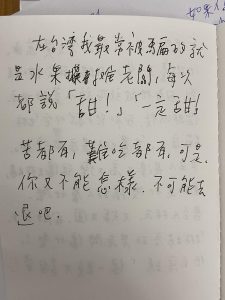 如果
在台灣我最常被騙的就
是水果攤
老闆,每次
都說「甜!」「一定甜!」
苦都有,難吃都有,可是,
你又不能怎樣.不可能去
退吧.